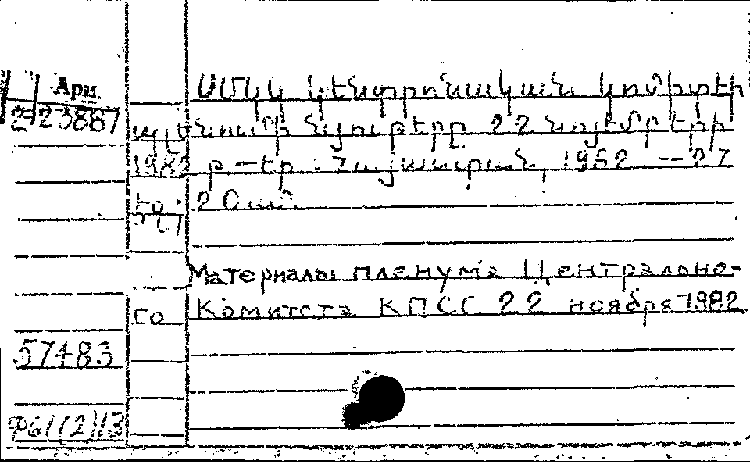 Арм.
2-23887
ՍՄԿԿ Կենտրոնական կոմիտեի
պլենումի նյութերը 22 նոյեմբերի
1982 թ — Եր.: Հայաստան, 1982 — 27
էջ: 20
Материалы пленума Центрально-
го Комитета КПСС 22 ноября 1982
57483
Ф61(2)13